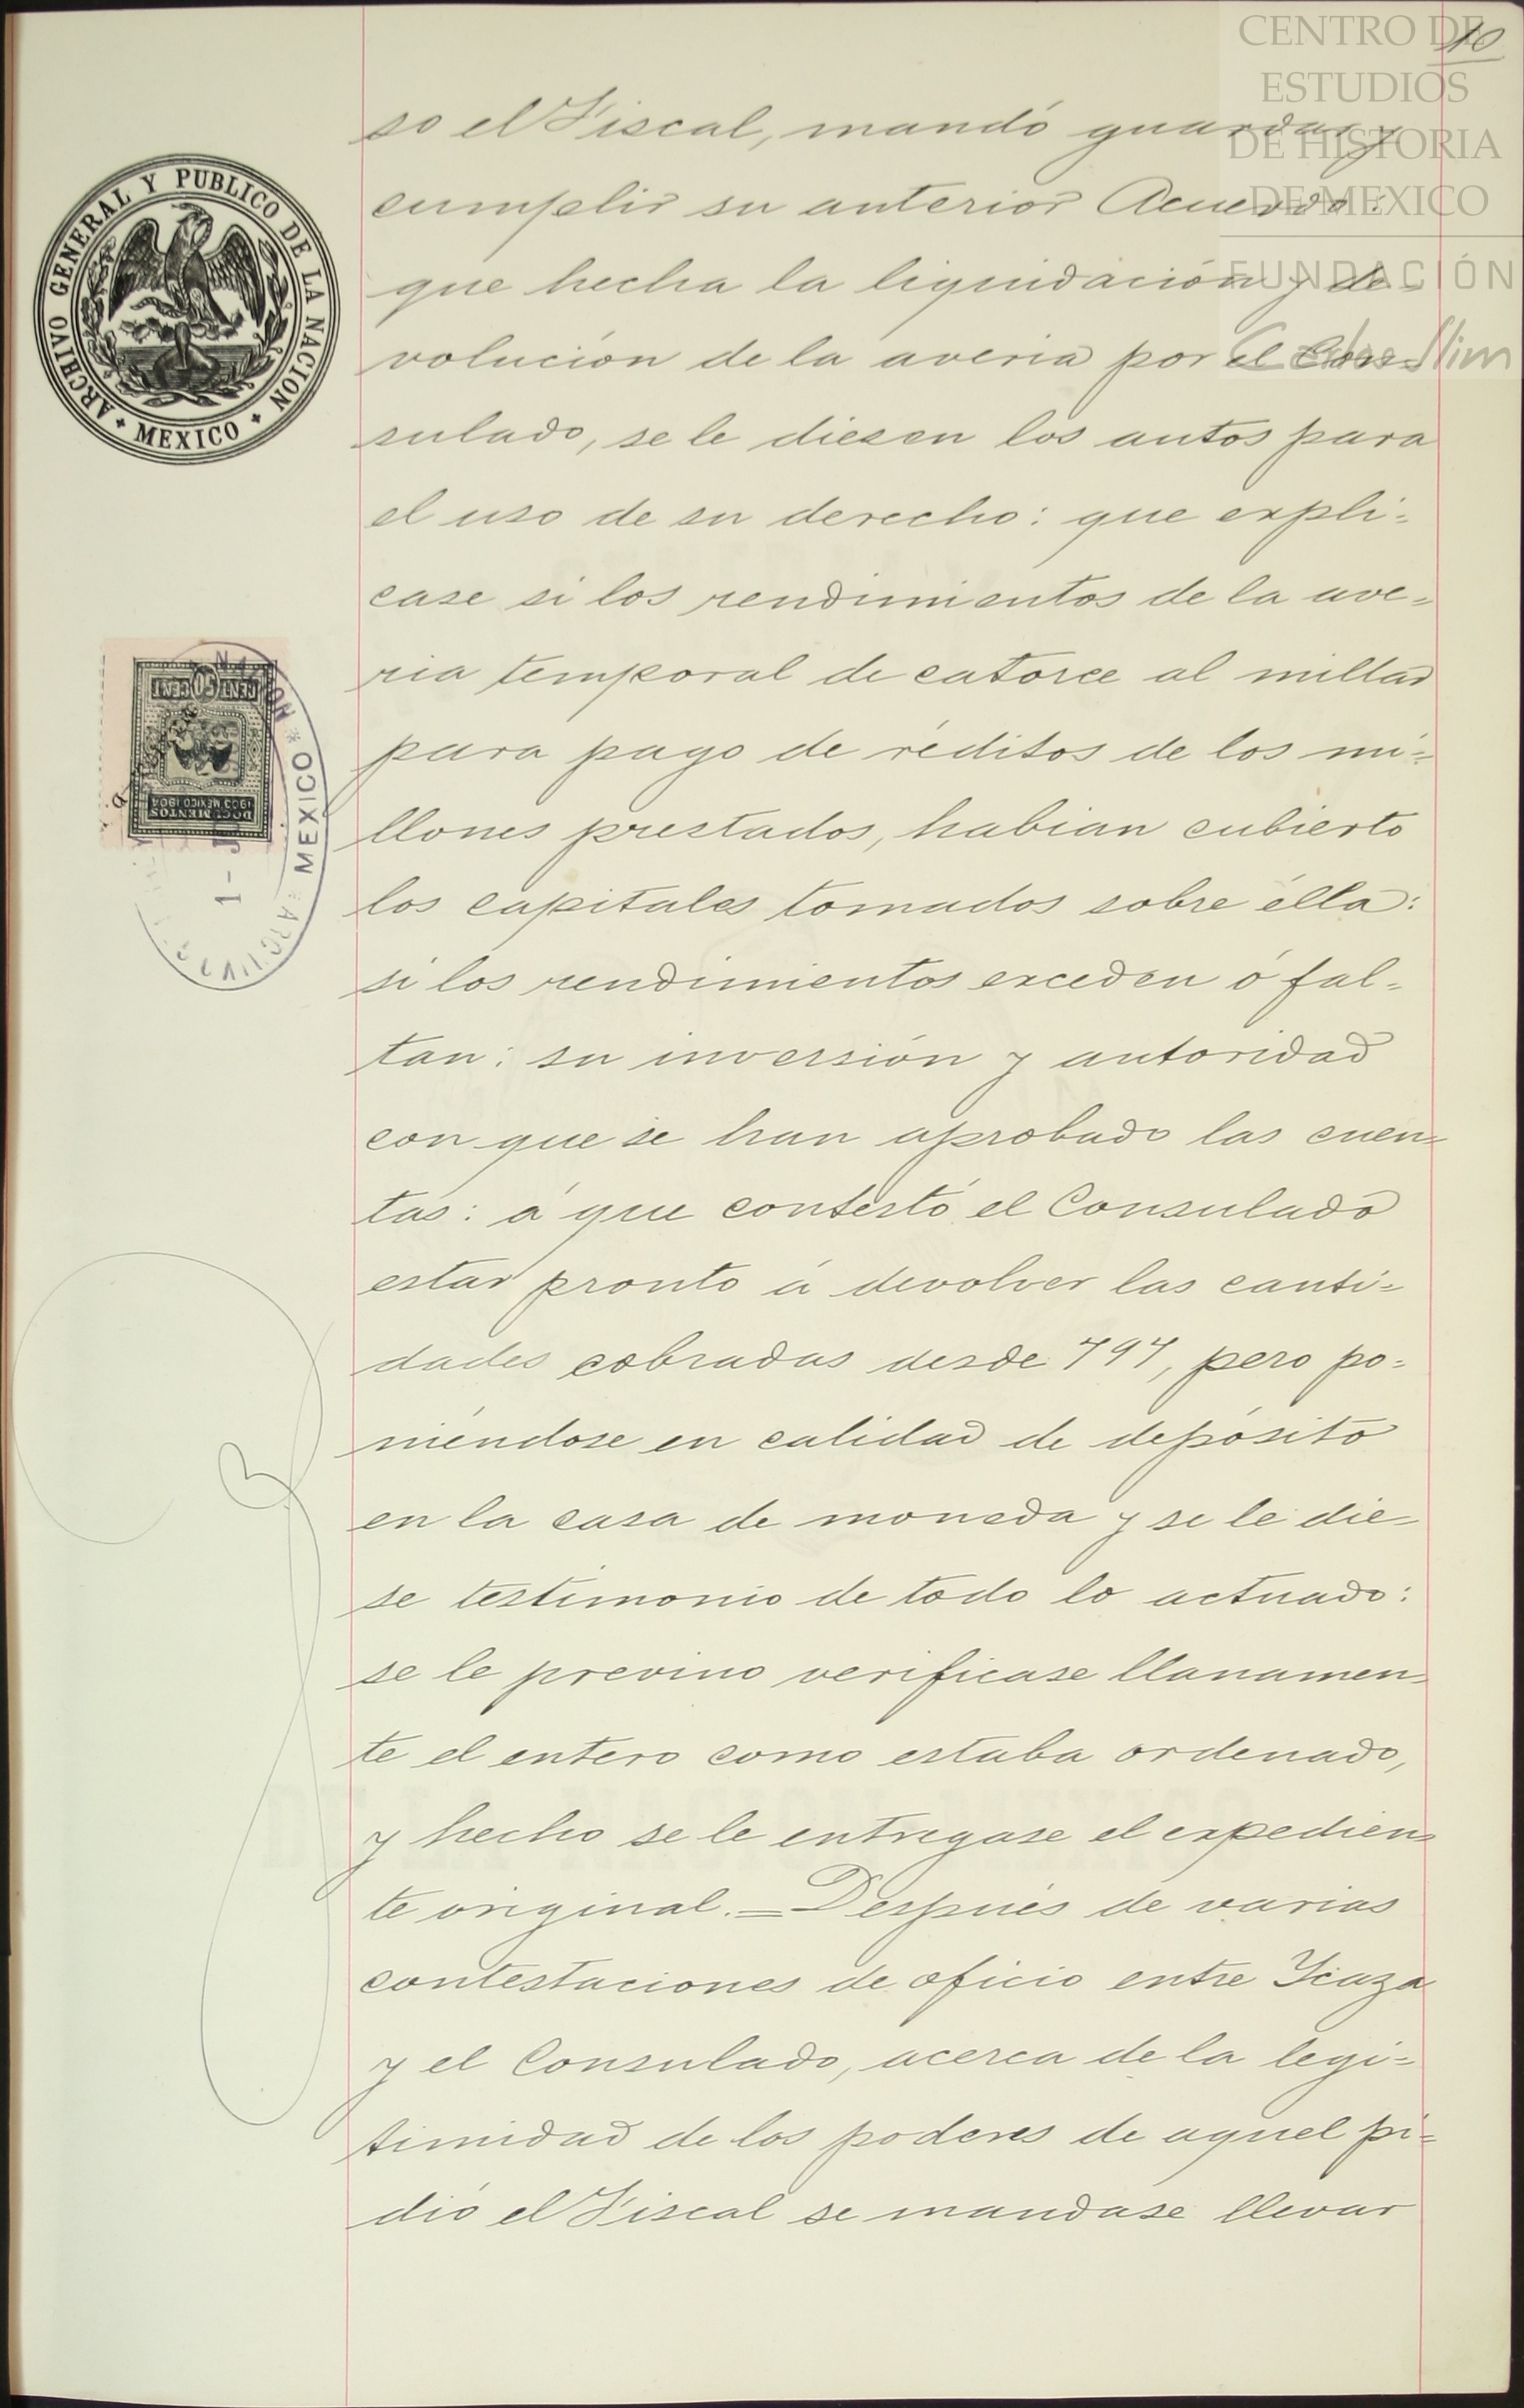 10
CENTRO DE
ESTUDIOS
DE HISTORIA
DE MEXICO
FUNDACIÓN
Carlos Slim
ARCHIVO GENERAL Y PUBLICO DE LA NACION
MEXICO
so el Fiscal, mandó guardar y
cumplir su anterior Acuerdo:
que hecha la liquidación y de=
volución de la averia por el Con=
sulado, se le diesen los autos para
el uso de su derecho: que expli=
case si los rendimientos de la ave=
ria temporal de catorce al millar
para pago de réditos de los mi=
llones prestados, habian cubierto
los capitales tomados sobre élla:
si los rendimientos exceden ó fal=
tan: su inversión y autoridad
con que se han aprobado las cuen=
tas: á que contestó el Consulado
estar pronto á devolver las canti=
dades cobradas desde 797, pero po=
niéndose en calidad de depósito
en la casa de moneda y se le die=
se testimonio de todo lo actuado:
se le previno verificase llanamen=
te el entero como estaba ordenado,
y hecho se le entregase el expedien=
te original.=Después de varias
contestaciones de oficio entre Ycaza
y el Consulado, acerca de la legi=
timidad de los poderes de aquel pi=
dió el Fiscal se mandase llevar
CENT 50 CENT
DOCUMENTOS
1903 MEXICO 1904
NACION * MEXICO * ARCHIVO
1-J